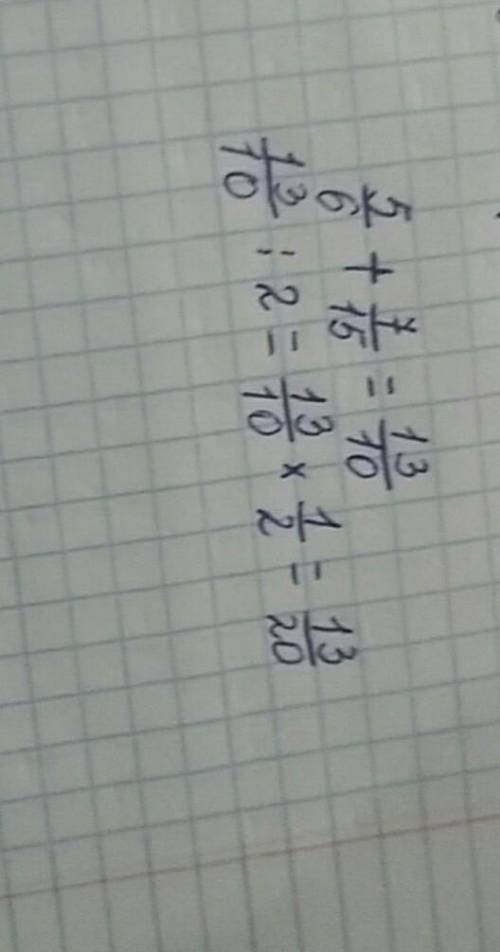 5/6 + 7/15 = 13/10
13/10 : 2 = 13/10 × 1/2 = 13/20